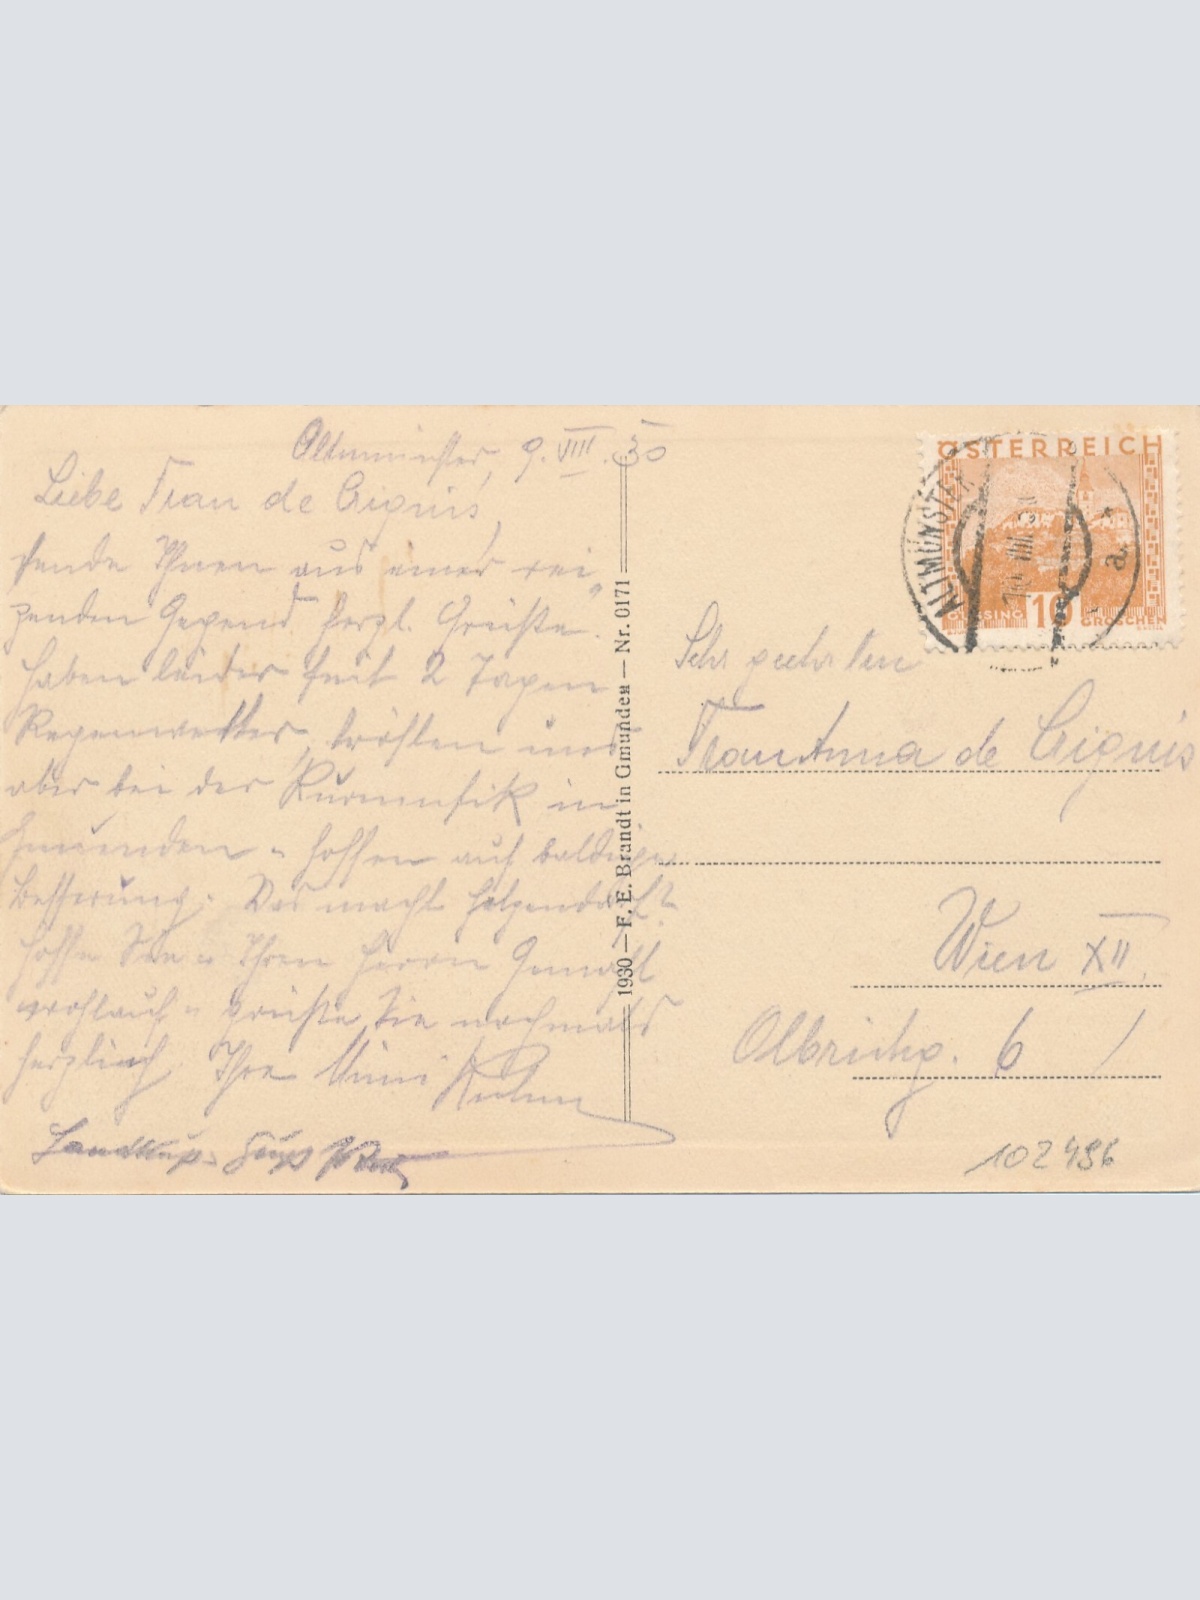 Altmünster, 9. VIII. 30
Liebe Frau de Crignis,
sende Ihnen aus einer rei„
zenden Gegend herzl. Grüße.
Haben leider seit 2 Tagen
Regenwetter, trösten uns
aber bei der Kurmusik in
Gmunden u hoffen auf baldige
Besserung. Was macht
hoffe Sie u Ihren Herrn Gemahl
wohlauf u grüße Sie nochmals
herzlich Ihre Mimi
1930 — F. E. Brandt in Gmunden — Nr. 0171
ÖSTERREICH
GÜSSING 10 GROSCHEN
ALTMÜNSTER
10.VIII.30
* a.
Sehr geehrten
Frau Anna de Crignis
Wien XII.
Olbrichg. 6 /
102496